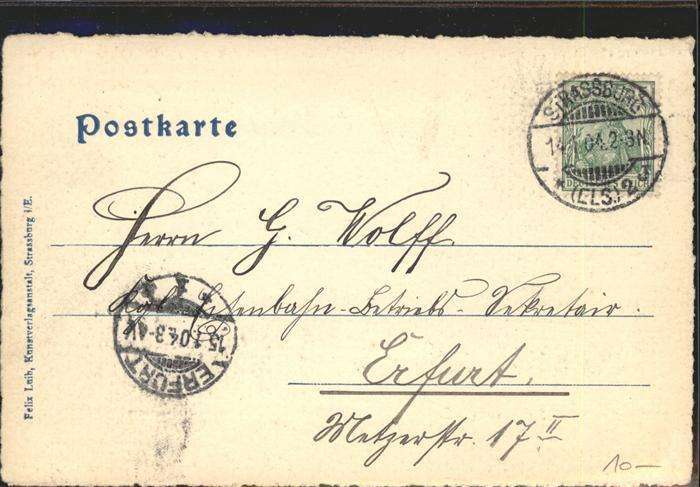 Postkarte
STRASSBURG
14.1.04.2-3N
* (ELS.) 2
Herrn G. Wolff
Kgl. Eisenbahn-Betriebs-Sekretair.
Erfurt.
Metzerstr. 17 II
ERFURT
15.1.04.3-4
Felix Luib, Kunstverlagsanstalt, Strassburg i/E.
10—